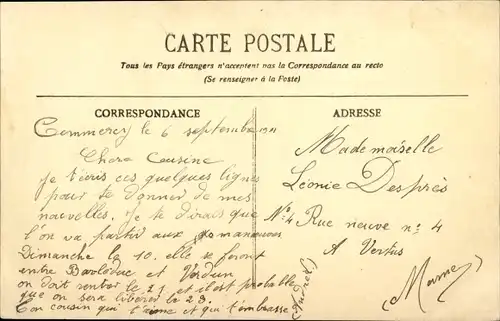 CARTE POSTALE
Tous les Pays étrangers n'acceptent pas la Correspondance au recto
(Se renseigner à la Poste)
CORRESPONDANCE
Commercy le 6 septembre 1911
Chere Cousine
je t'ecris ces quelques lignes
pour te donner de mes
nouvelles. Je te dirais que
l'on va partir aux manœuvres
Dimanche le 10. elle se feront
entre Barleduc et Verdun
on doit rentrer le 21 et il est probable
que on sera libérer le 23.
Ton cousin qui t'aime et qui t'embrasse
ADRESSE
Mademoiselle
Léonie Desprès
No. 4 Rue neuve no 4
A Vertus
(Marne)